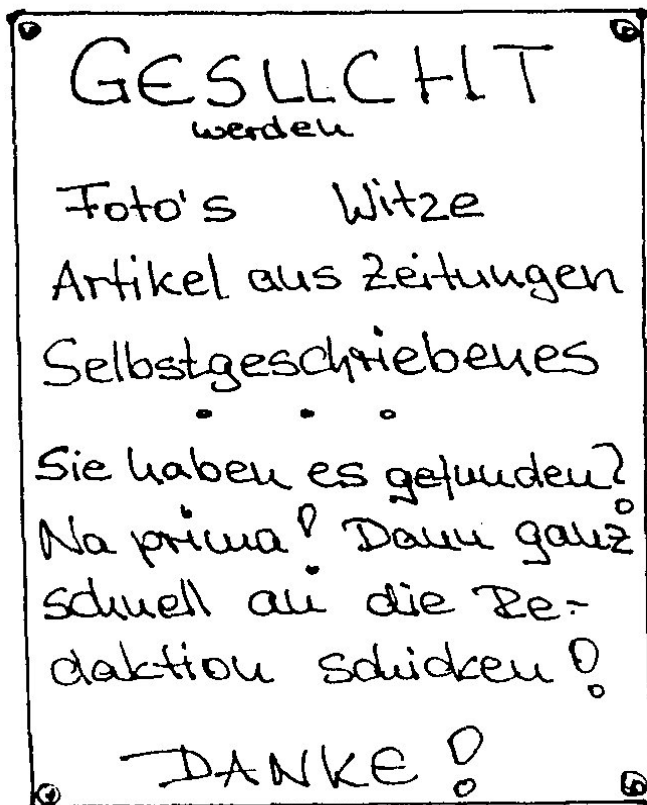 GESUCHT
werden
Foto's Witze
Artikel aus Zeitungen
Selbstgeschriebenes
. . .
Sie haben es gefunden?
Na prima! Dann ganz
schnell an die Re-
daktion schicken!
DANKE!